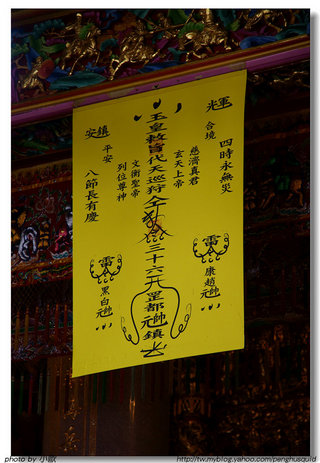 輝光
四時永無災
合境
慈濟真君
玄天上帝
玉皇敕旨代天巡狩
令三十六天罡都元帥鎮
文衡聖帝
列位尊神
平安
鎮安
八節長有慶
雷令
康趙元帥
雷令
黑白元帥
photo by 小歐
http://tw.myblog.yahoo.com/penghusquid